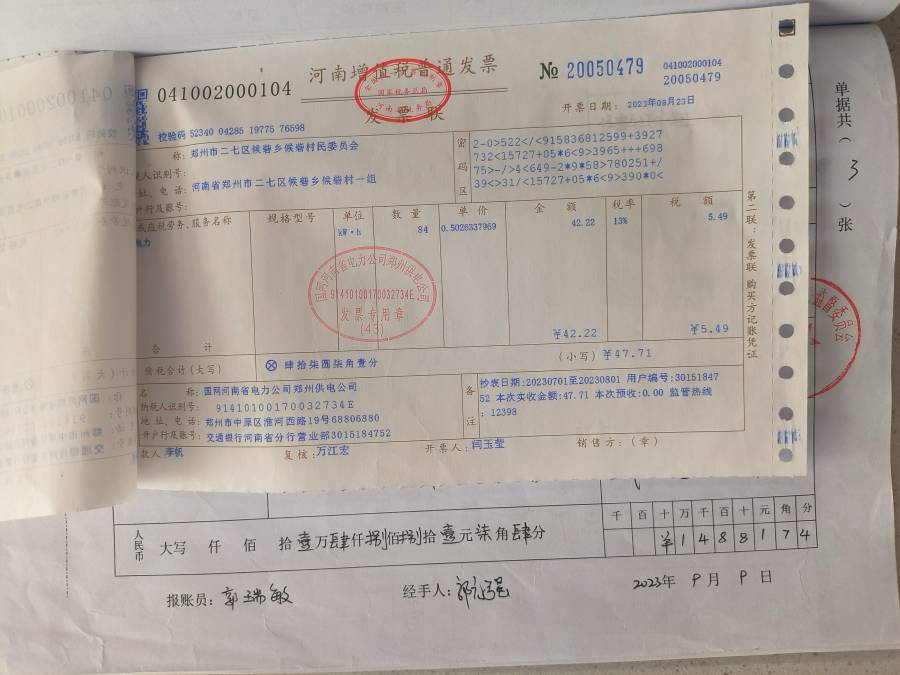 河南增值税普通发票
发票联
国家税务总局
041002000104
№ 20050479
041002000104
20050479
开票日期: 2023年08月23日
校验码 52340 04285 19775 76598
称: 郑州市二七区候砦乡候砦村民委员会
人识别号:
址、电话: 河南省郑州市二七区候砦乡候砦村一组
户行及账号:
密码区
2-0>522<</<915836812599+3927
732<15727+05*6<9>3965+++698
75>-/>4<649-2*9*58>780251+/
39<>31/<15727+05*6<9>390*0<
或应税劳务、服务名称 规格型号 单位 数量 单价 金额 税率 税额
电力 kW·h 84 0.5026337969 42.22 13% 5.49
国网河南省电力公司郑州供电公司
91410100170032734E
发票专用章
(43)
合计 ¥42.22 ¥5.49
价税合计(大写) ⊗ 肆拾柒圆柒角壹分 (小写) ¥47.71
名称: 国网河南省电力公司郑州供电公司
纳税人识别号: 91410100170032734E
地址、电话: 郑州市中原区淮河西路19号68806880
开户行及账号: 交通银行河南省分行营业部3015184752
备注
抄表日期:20230701至20230801 用户编号:30151847
52 本次实收金额:47.71 本次预收:0.00 监管热线
: 12398
款人 李帆 复核: 万江宏 开票人: 闫玉莹 销售方: (章)
第二联: 发票联 购买方记账凭证
单据共(3)张
人民币
大写 仟 佰 拾 壹万肆仟捌佰捌拾壹元柒角肆分
千 百 十 万 千 百 十 元 角 分
¥ 1 4 8 8 1 7 4
报账员: 郭瑞敏
经手人:
2023年 9月 9日